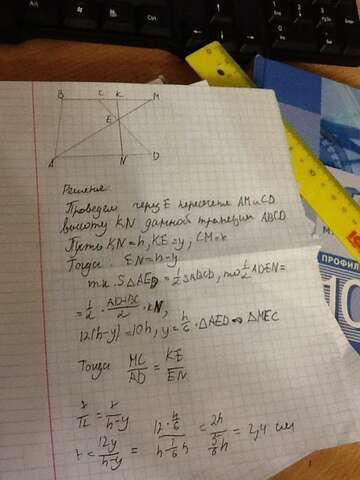 B C K M
E
A N D
Решение:
Проведем через E пересечение AM и CD
высоту KN данной трапеции ABCD
Пусть KN=h, KE=y, CM=x
Тогда: EN=h-y
т.к. S△AED = 1/2 SABCD, то 1/2 AD·EN=
= 1/2 · AD+BC/2 · KN,
12(h-y)=10h, y=h/6 · △AED ∾ △MEC
Тогда MC/AD = KE/EN
x/12 = y/h-y
x = 12y/h-y = 12·h/6 / h-1/6h = 2h / 5/6h = 2,4 см
ПРОФИЛ